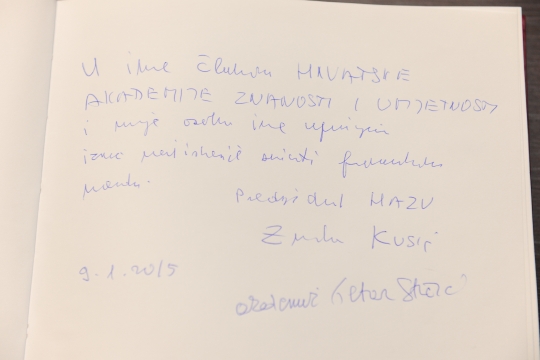 U ime članova HRVATSKE
AKADEMIJE ZNANOSTI I UMJETNOSTI
i moje osobno ime upisujem
izraz najiskrenije sućuti francuskom
narodu.
Predsjednik HAZU
Zvonko Kusić
9. 1. 2015
akademik